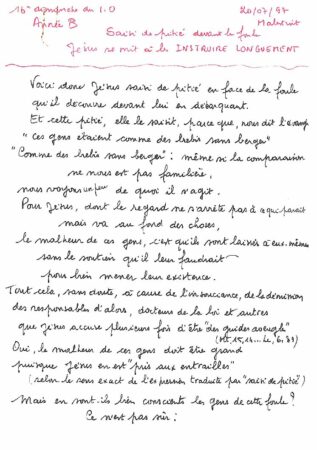 16e dimanche du T.O
20/07/97
Année B
Malestroit
Saisi de pitié devant la foule
Jésus se mit à les INSTRUIRE LONGUEMENT
Voici donc Jésus saisi de pitié en face de la foule
qu'il découvre devant lui en débarquant.
Et cette pitié, elle le saisit, parce que, nous dit l'évang
"ces gens étaient comme des brebis sans berger"
"Comme des brebis sans berger": même si la comparaison
ne nous est pas familière,
nous voyons un peu de quoi il s'agit.
Pour Jésus, dont le regard ne s'arrête pas à ce qui paraît
mais va au fond des choses,
le malheur de ces gens, c'est qu'ils sont laissés à eux-mêmes
sans le soutien qu'il leur faudrait
pour bien mener leur existence.
Tout cela, sans doute, à cause de l'insouciance, de la démission
des responsables d'alors, docteurs de la loi et autres
que Jésus accuse plusieurs fois d'être "des guides aveugles"
(Mt. 15,14... Lc, 6: 39)
Oui, le malheur de ces gens doit être grand
puisque Jésus en est "pris aux entrailles"
(selon le sens exact de l'expression traduite par "saisi de pitié")
Mais en sont-ils bien conscients les gens de cette foule?
Ce n'est pas sûr: